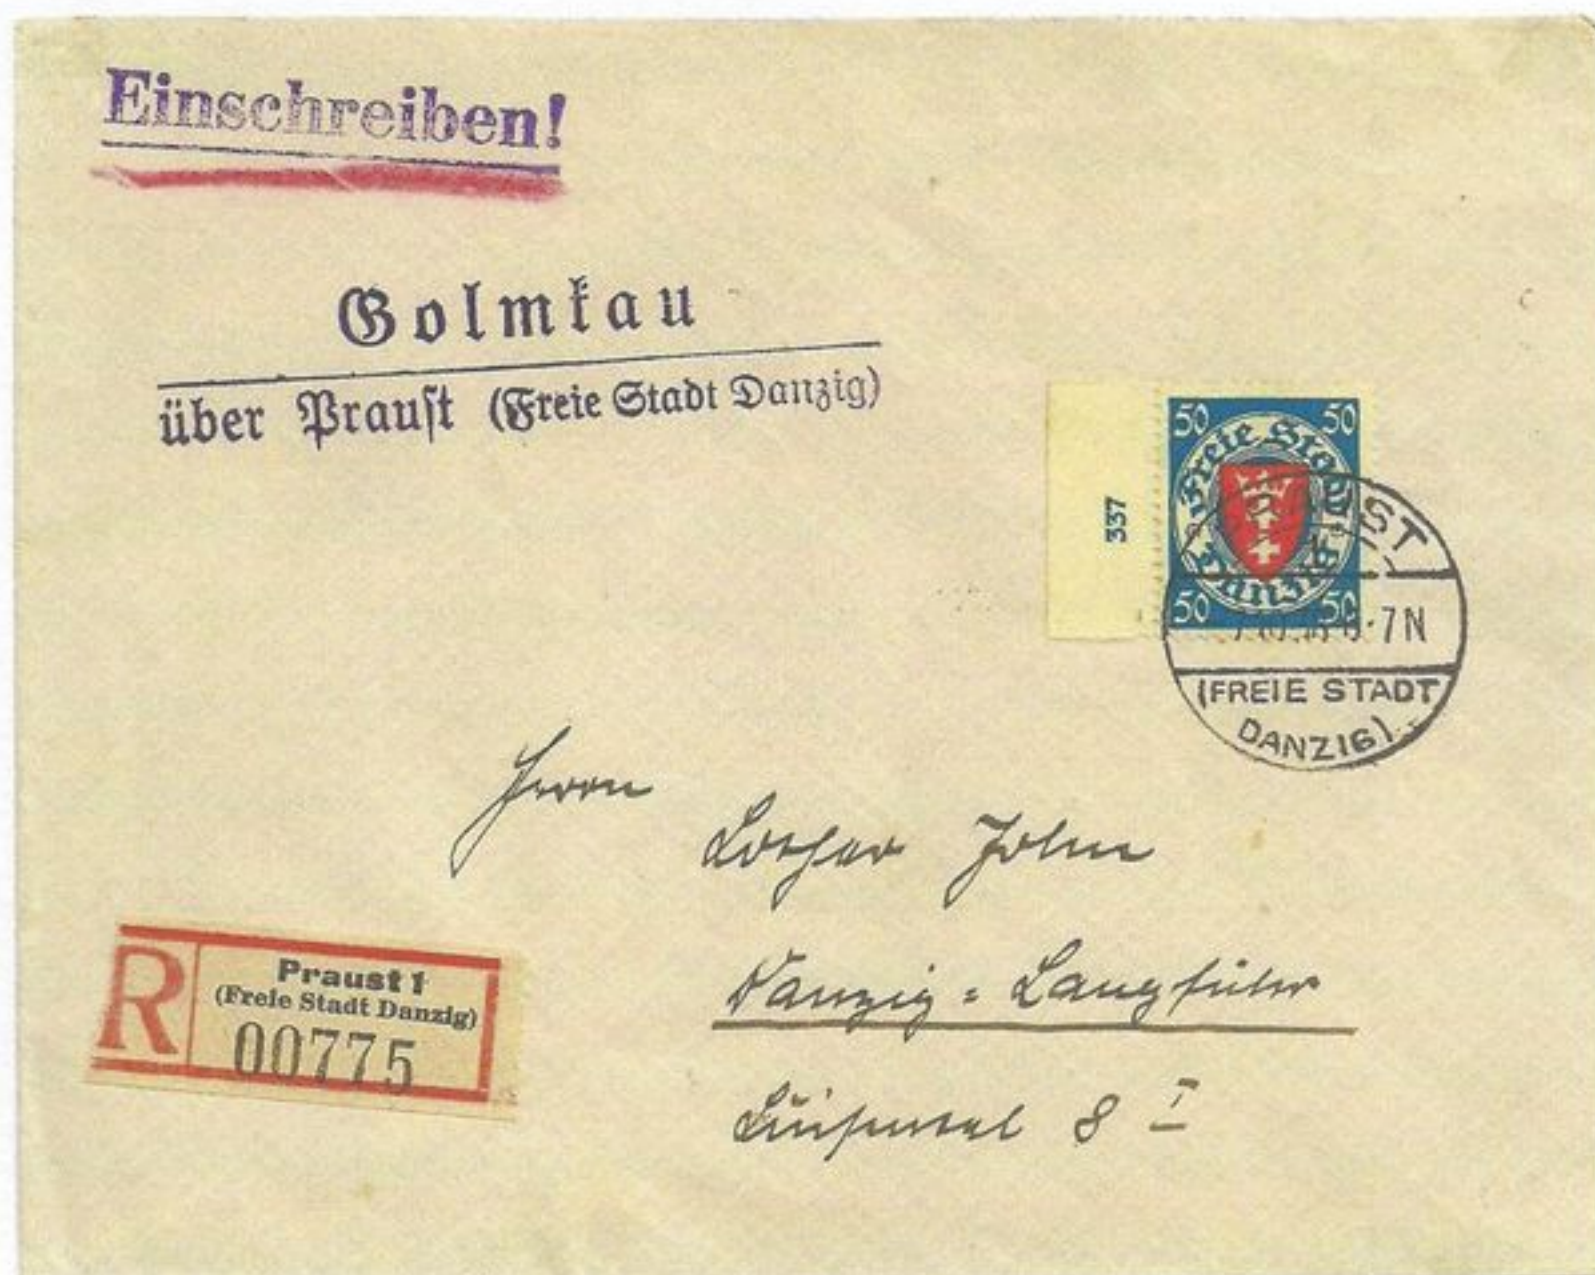 Einschreiben!
Golmkau
über Praust (Freie Stadt Danzig)
50 50
Freie Stadt
Danzig
50 50
337
7N
(FREIE STADT
DANZIG)
Herrn
Lothar
Danzig = Langfuhr
8 I
R
Praust 1
(Freie Stadt Danzig)
00775